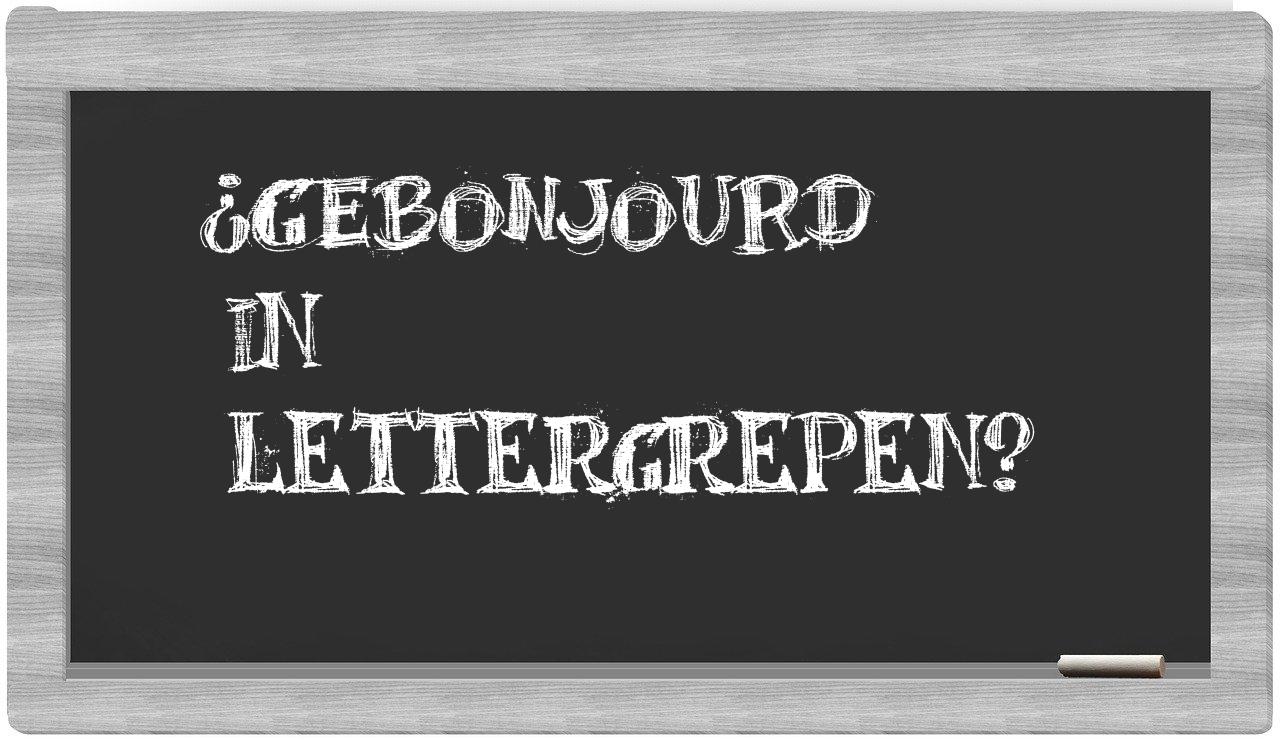 ¿GEBONJOURD
IN
LETTERGREPEN?